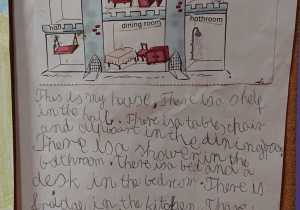 hall
dining room
bathroom
This is my house. There is a shelf
in the hall. There is a table, chair
and cupboart in the diningroom
There is a shower in the
bathroom. there is a bed and a
desk in the bedroom. There is
fridge in the kitchen. I have